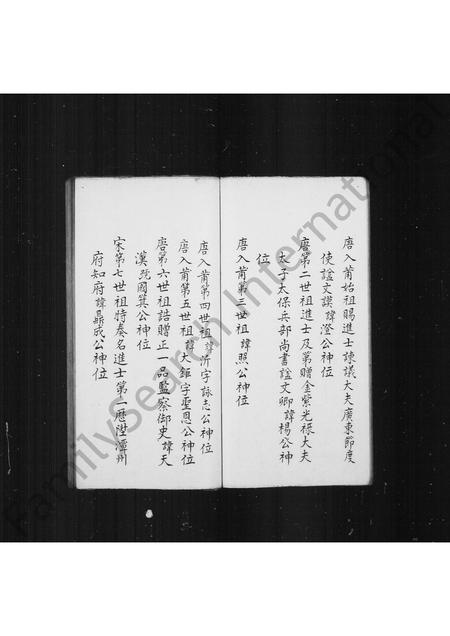 唐入莆始祖賜進士諫議大夫廣東節度
使諡文謨諱澄公神位
唐第二世祖進士及第贈金紫光祿大夫
太子太保兵部尚書諡文卿諱楊公神
位
唐入莆第三世祖諱照公神位
唐入莆第四世祖諱沂字詠志公神位
唐入莆第五世祖諱大鉅字聖恩公神位
唐第六世祖誥贈正一品監察御史諱天
漢號國箕公神位
宋第七世祖特奏名進士第一歷陞漳州
府知府諱鼎成公神位
FamilySearch International